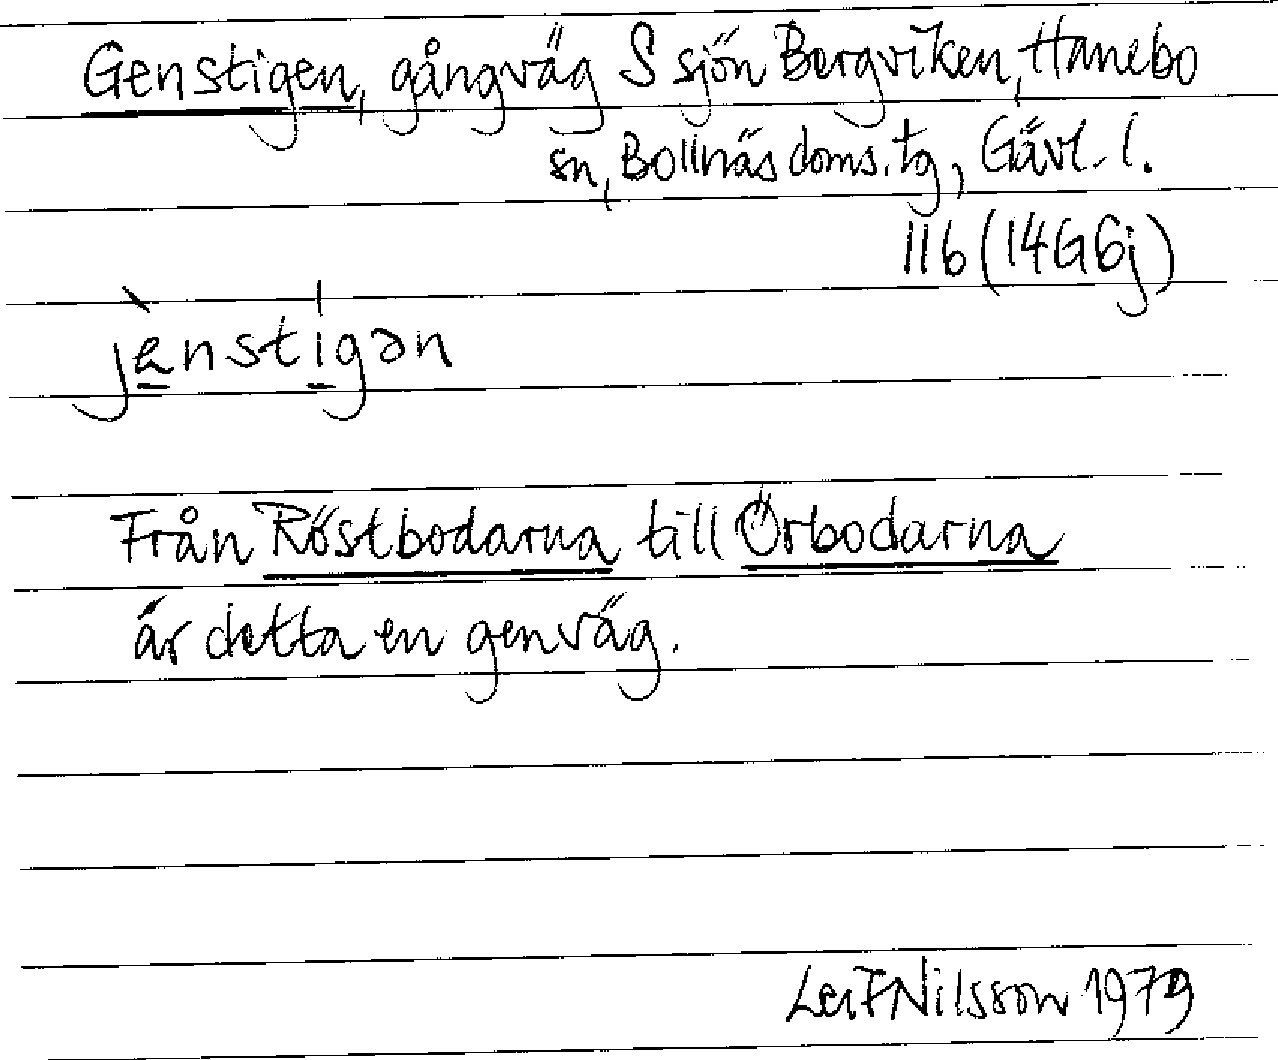 Genstigen, gångväg S sjön Bergviken, Hanebo
sn, Bollnäs doms.tg, Gävl. l.
116 (14G6j)
jènstígən
Från Röstbodarna till Örbodarna
är detta en genväg.
Leif Nilsson 1979